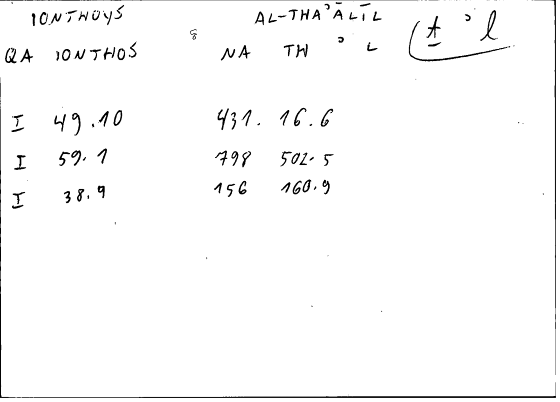 IONTHOYS AL-THAʾĀLĪL
QA IONTHOS 8 NA TH ʾ L ṯ ʾ l
I 49.10 431. 16.6
I 59.1 798 502.5
I 38.9 156 160.9